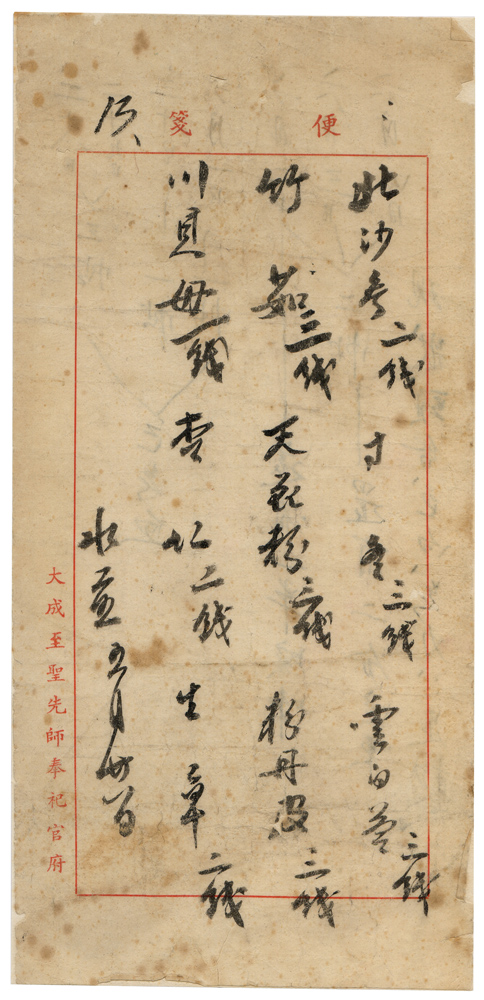 便箋
北沙参二钱 寸冬三钱 雲白苓三钱
竹茹三钱 天花粉三钱 粉丹皮三钱
川貝母一钱 杏仁二钱 生草二钱
水煎 五月
大成至聖先師奉祀官府